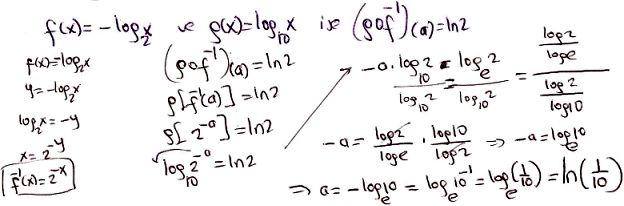 f(x) = -log₂x ve g(x) = log₁₀x ise (gof⁻¹)(a) = ln2
f(x) = log₂x
y = -log₂x
log₂x = -y
x = 2⁻ʸ
f⁻¹(x) = 2⁻ˣ
(gof⁻¹)(a) = ln2
g[f⁻¹(a)] = ln2
g[2⁻ᵃ] = ln2
log₁₀2⁻ᵃ = ln2
(-a.log₁₀2)/(log₁₀2) = (logₑ2)/(log₁₀2) = (log2/loge)/(log2/log10)
-a = log2/loge . log10/log2 ⇒ -a = logₑ10
⇒ a = -logₑ10 = logₑ10⁻¹ = logₑ(1/10) = ln(1/10)